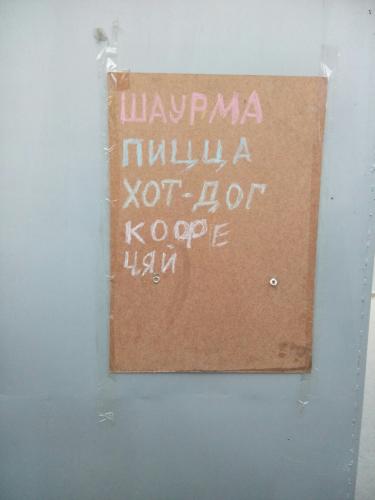 ШАУРМА
ПИЦЦА
ХОТ-ДОГ
КОФЕ
ЧЯЙ